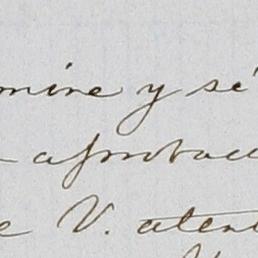 mine y sé
aprobac
e V. aten